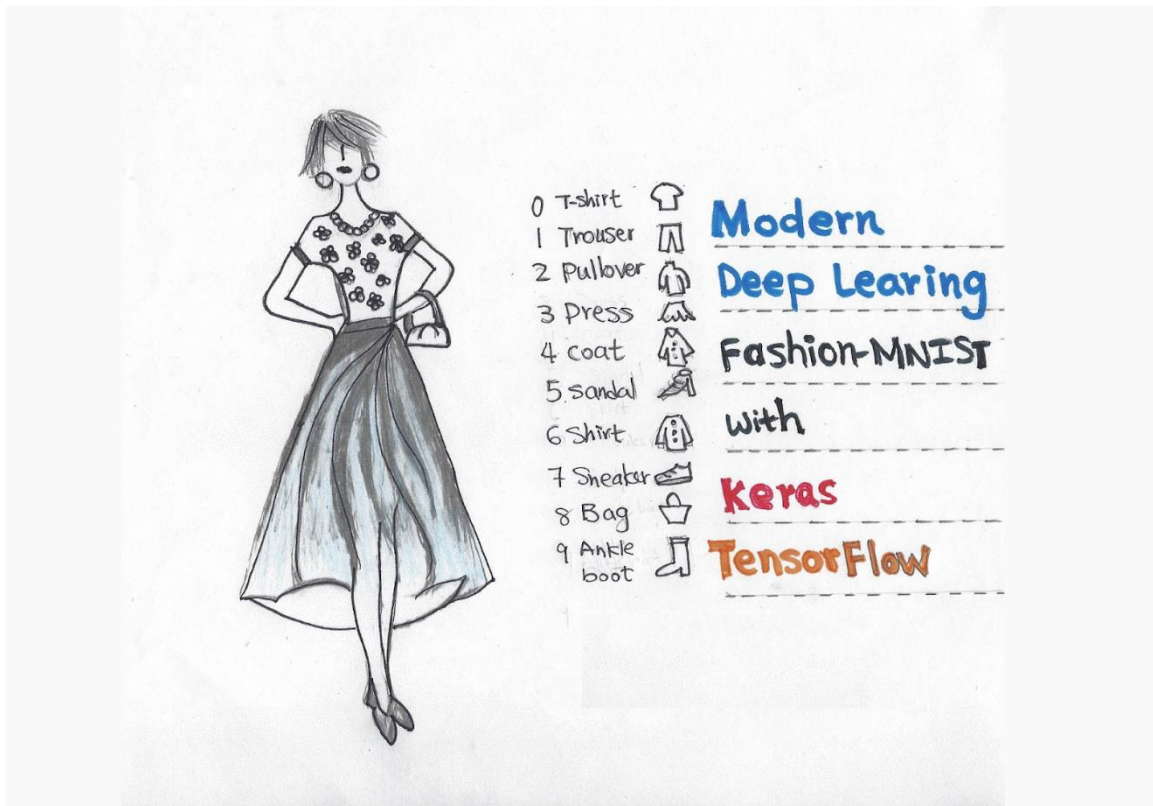 0 T-shirt
1 Trouser
2 Pullover
3 Dress
4 coat
5 Sandal
6 Shirt
7 Sneaker
8 Bag
9 Ankle
boot
Modern
Deep Learing
Fashion-MNIST
with
Keras
TensorFlow